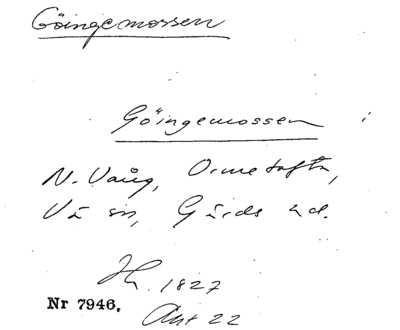 Göingemossen
Göingemossen i
N. Vång, Ormetofta,
Vä sn, Gärds hd.
Hr. 1827
Nr 7946.
Akt 22